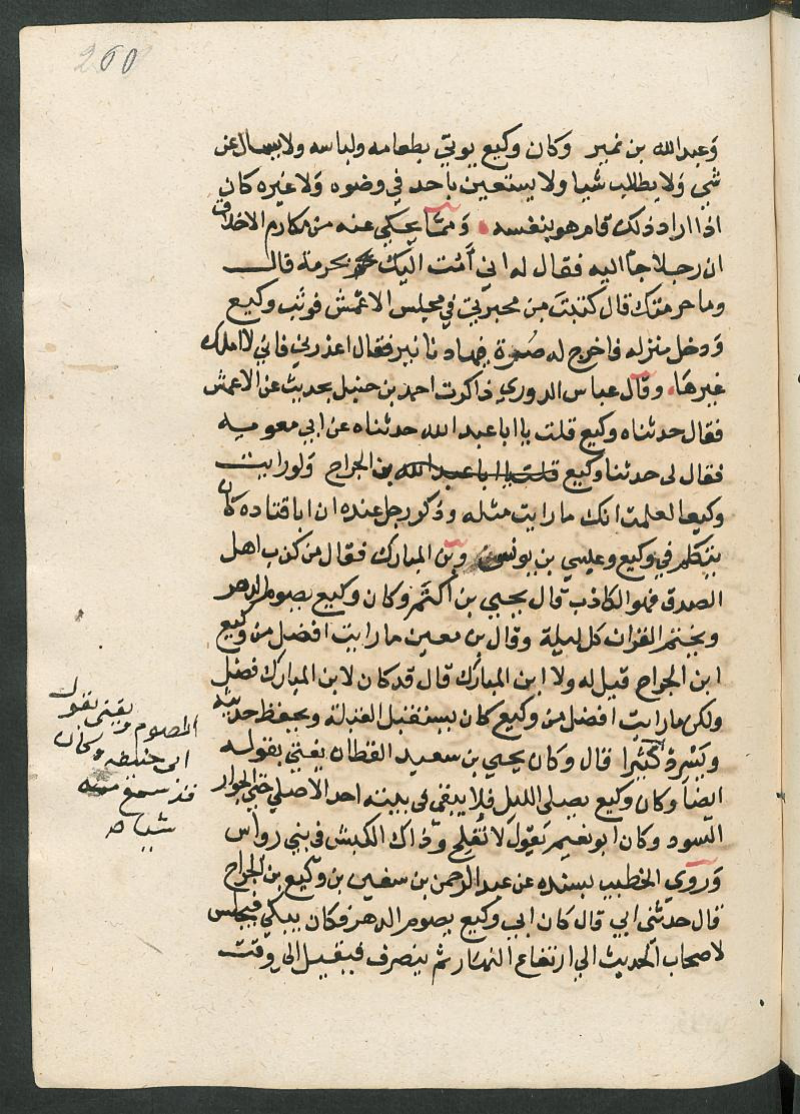 260
وعبد الله بن نمير وكان وكيع يوتي بطعامه ولباسه ولا يسال عن
شي ولا يطالب شيا ولا يستعين باحد في وضوه ولا غيره كان
اذا اراد ذلك قام هو بنفسه ومما يحكي عنه من مكارم الاخلاق
ان رجلا جا اليه فقال له اني أمت اليك بحرمة قال
وما حرمتك قال كتبت من محبرتي في مجلس الاعمش فوثب وكيع
ودخل منزله فاخرج له صرة فيها دنانير فقال اعذرني فاني لا املك
غيرها وقال عباس الدوري ذاكرت احمد بن حنبل بحديث عن الاعمش
فقال حدثناه وكيع قلت يا ابا عبد الله حدثناه عن ابي معوية
فقال لى حدثنا وكيع قلت يا ابا عبد الله بن الجراح ولو رايت
وكيعا لعلمت انك ما رايت مثله وذكر رجل عنده ان ابا قتاده كان
يتكلم في وكيع وعيسي بن يونس وبن المبارك فقال من كذب اهل
الصدق فهو الكاذب قال يحيي بن اكثم وكان وكيع يصوم الدهر
ويختم القران كل ليلة وقال بن معين ما رايت افضل من وكيع
ابن الجراح قيل له ولا ابن المبارك قال قد كان لابن المبارك فضل
ولكن ما رايت افضل من وكيع كان يستقبل القبلة ويحفظ حديثه
ويسرد كثيرا قال وكان يحيي بن سعيد القطان يفتي بقوله
ايضا وكان وكيع يصلي الليل فلا يبقى في بيته احد الا صلي حتي الجوار
السود وكان ابو نعيم يقول لا نفلح وذاك الكبش في بني رواس
وروي الخطيب بسنده عن عبد الرحمن بن سفين بن وكيع بن الجراح
قال حدثني ابي قال كان ابي وكيع يصوم الدهر فكان يبكي فيجلس
لاصحاب الحديث الي ارتفاع النهار ثم ينصرف فيقيل الي وقت
الصوم ويفتي بقول
ابى حنيفه وكان
قد سمع منه
شيا